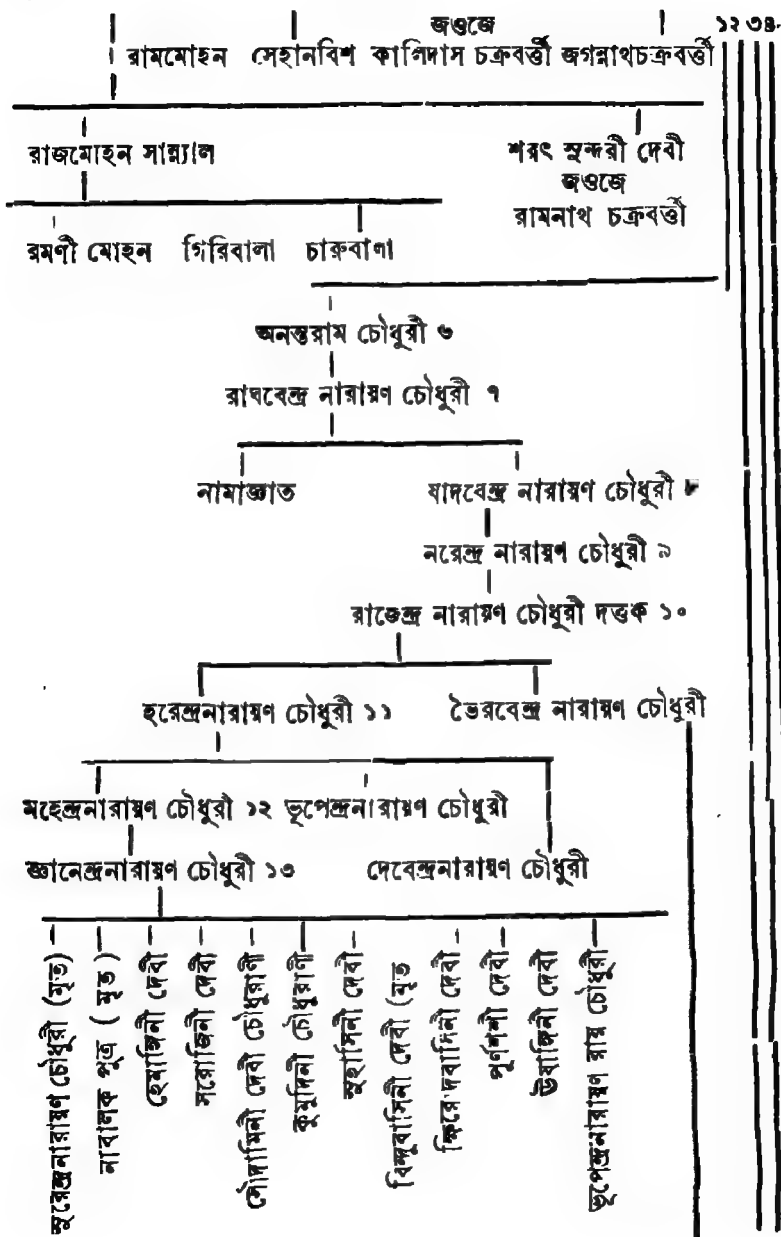 জওজে ১২৩৪
রামমোহন সেহানবিশ কালিদাস চক্রবর্ত্তী জগন্নাথচক্রবর্ত্তী
রাজমোহন সান্ন্যাল শরৎ সুন্দরী দেবী
জওজে
রামনাথ চক্রবর্ত্তী
রমণী মোহন গিরিবালা চারুবালা
অনন্তরাম চৌধুরী ৬
রাঘবেন্দ্র নারায়ণ চৌধুরী ৭
নামাজ্ঞাত যাদবেন্দ্র নারায়ণ চৌধুরী ৮
নরেন্দ্র নারায়ণ চৌধুরী ৯
রাজেন্দ্র নারায়ণ চৌধুরী দত্তক ১০
হরেন্দ্রনারায়ণ চৌধুরী ১১ ভৈরবেন্দ্র নারায়ণ চৌধুরী
মহেন্দ্রনারায়ণ চৌধুরী ১২ ভূপেন্দ্রনারায়ণ চৌধুরী
জ্ঞানেন্দ্রনারায়ণ চৌধুরী ১৩ দেবেন্দ্রনারায়ণ চৌধুরী
সুরেন্দ্রনারায়ণ চৌধুরী (মৃত)
নাবালক পুত্র ( মৃত )
হেমাঙ্গিনী দেবী
সরোজিনী দেবী
সৌদামিনী দেবী চৌধুরাণী
কুমুদিনী চৌধুরাণী
সুহাসিনী দেবী
বিন্দুবাসিনী দেবী (মৃত
ক্ষিরোদবাসিনী দেবী
পূর্ণশশী দেবী
ঊষাঙ্গিনী দেবী
ভূপেন্দ্রনারায়ণ রায় চৌধুরী